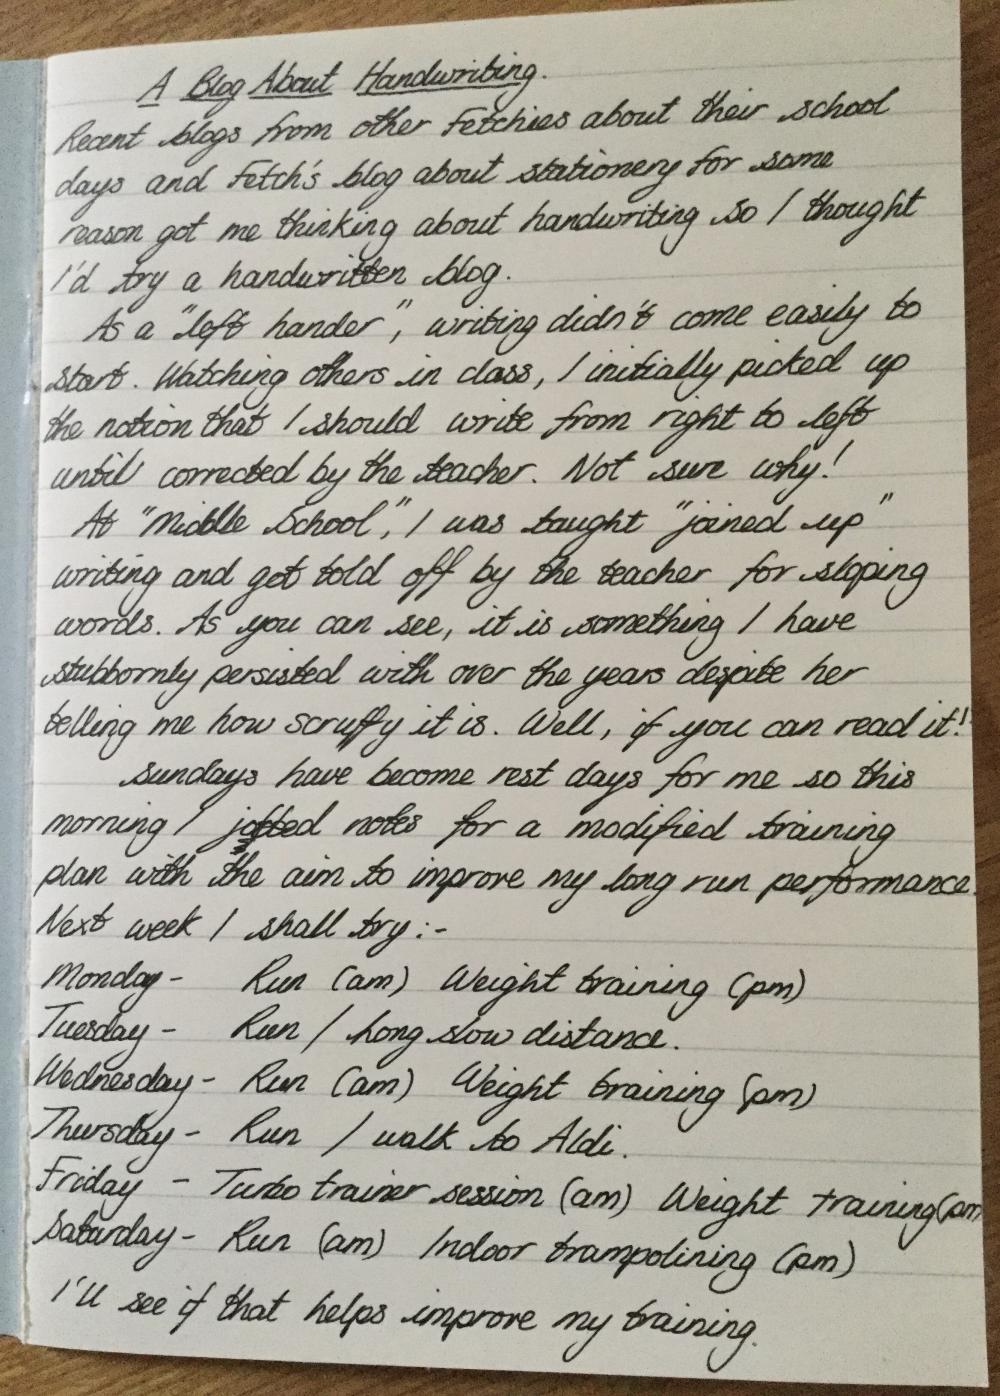 A Blog About Handwriting.
Recent blogs from other Fetchies about their school
days and Fetch's blog about stationery for some
reason got me thinking about handwriting so I thought
I'd try a handwritten blog.
As a "left hander", writing didn't come easily to
start. Watching others in class, I initially picked up
the notion that I should write from right to left
until corrected by the teacher. Not sure why!
At "Middle School", I was taught "joined up"
writing and got told off by the teacher for sloping
words. As you can see, it is something I have
stubbornly persisted with over the years despite her
telling me how scruffy it is. Well, if you can read it!
Sundays have become rest days for me so this
morning I jotted notes for a modified training
plan with the aim to improve my long run performance.
Next week I shall try:-
Monday - Run (am) Weight training (pm)
Tuesday - Run / Long slow distance.
Wednesday - Run (am) Weight training (pm)
Thursday - Run / walk to Aldi.
Friday - Turbo trainer session (am) Weight training (pm
Saturday - Run (am) Indoor trampolining (pm)
I'll see if that helps improve my training.